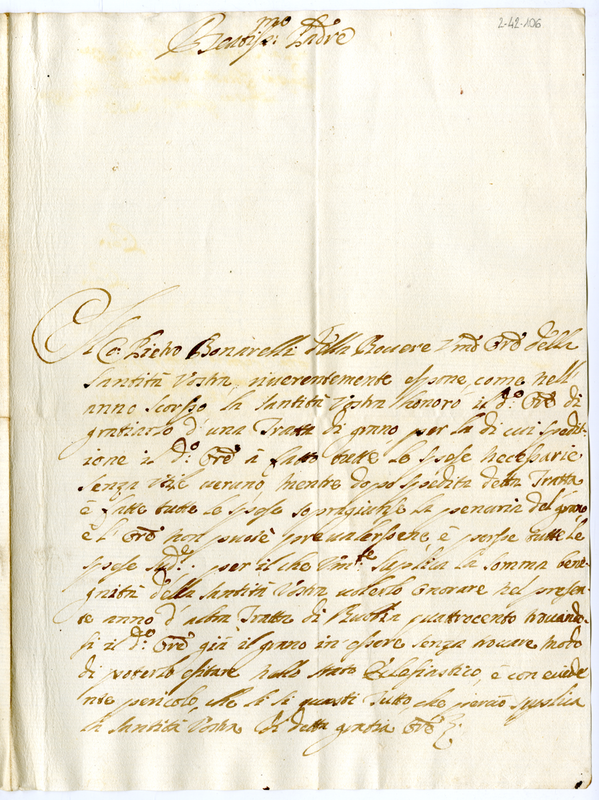 2-42-106
Beatiss.mo Padre
Il Co: Pietro Bonarelli della Rovere Um.o Ore della
Santità Vostra, riverentemente espone, come nell
anno scorso la Santità Vostra honorò il d.o Ore di
gratiarlo d'una Tratta di grano, per la di cui spedit-
ione il d.o Ore à fatto tutte le spese necessarie
senza utile veruno, mentre dopo spedita detta Tratta
è fatte tutte le spese sopragiunse la penuria del grano
è l'Ore non puotè prevalersene, è perse tutte le
spese sud.e per il che Um.te suplica la somma beni-
gnità della Santità Vostra, volerlo honorare nel presen-
te anno d'altra Tratta di Rubbia quattrocento trovando-
si il d.o Ore già il grano in essere senza trovare modo
di poterlo esitare nello stato Eclesiastico, è con evide
nte pericolo, che li si guasti tutto che perciò suplica
la Santità Vostra di detta gratia Ore